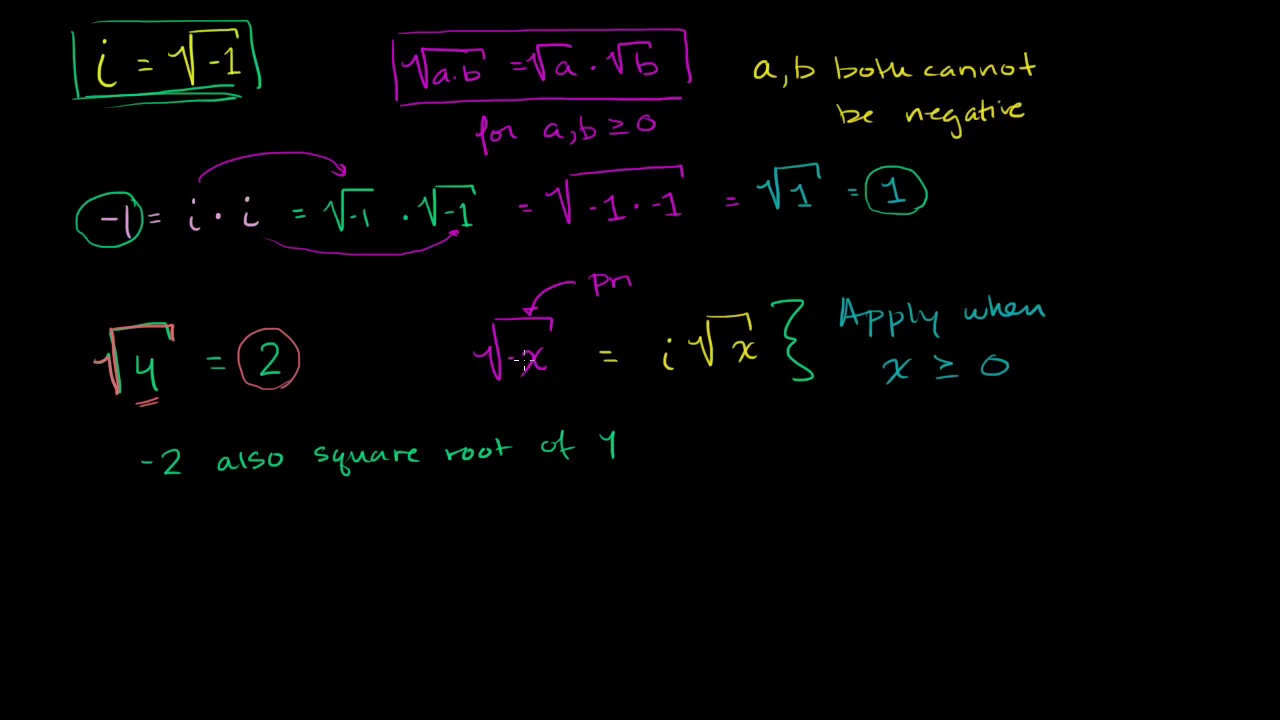 i = √-1
√a·b = √a · √b
for a,b ≥ 0
a,b both cannot
be negative
-1 = i · i = √-1 · √-1 = √-1 · -1 = √1 = 1
√4 = 2
Prn
√-x = i√x } Apply when
x ≥ 0
-2 also square root of 4